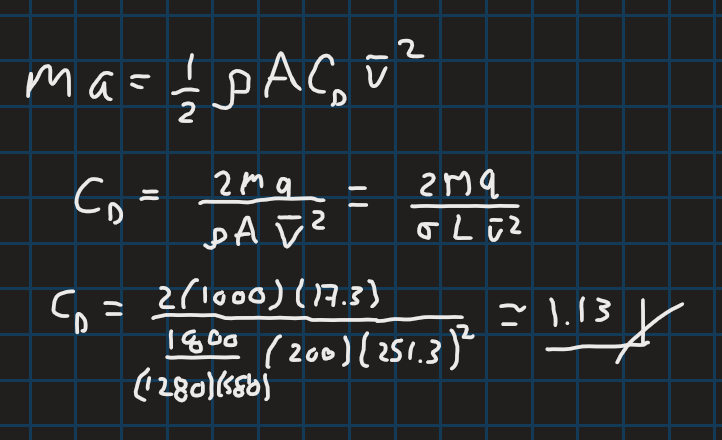 ma = 1/2 ρ A C_D v̄²
C_D = 2ma / (ρ A v̄²) = 2Ma / (σ L v̄²)
C_D = 2(1000)(17.3) / (1800/((1280)(580)) (200)(251.3)²) ≃ 1.13